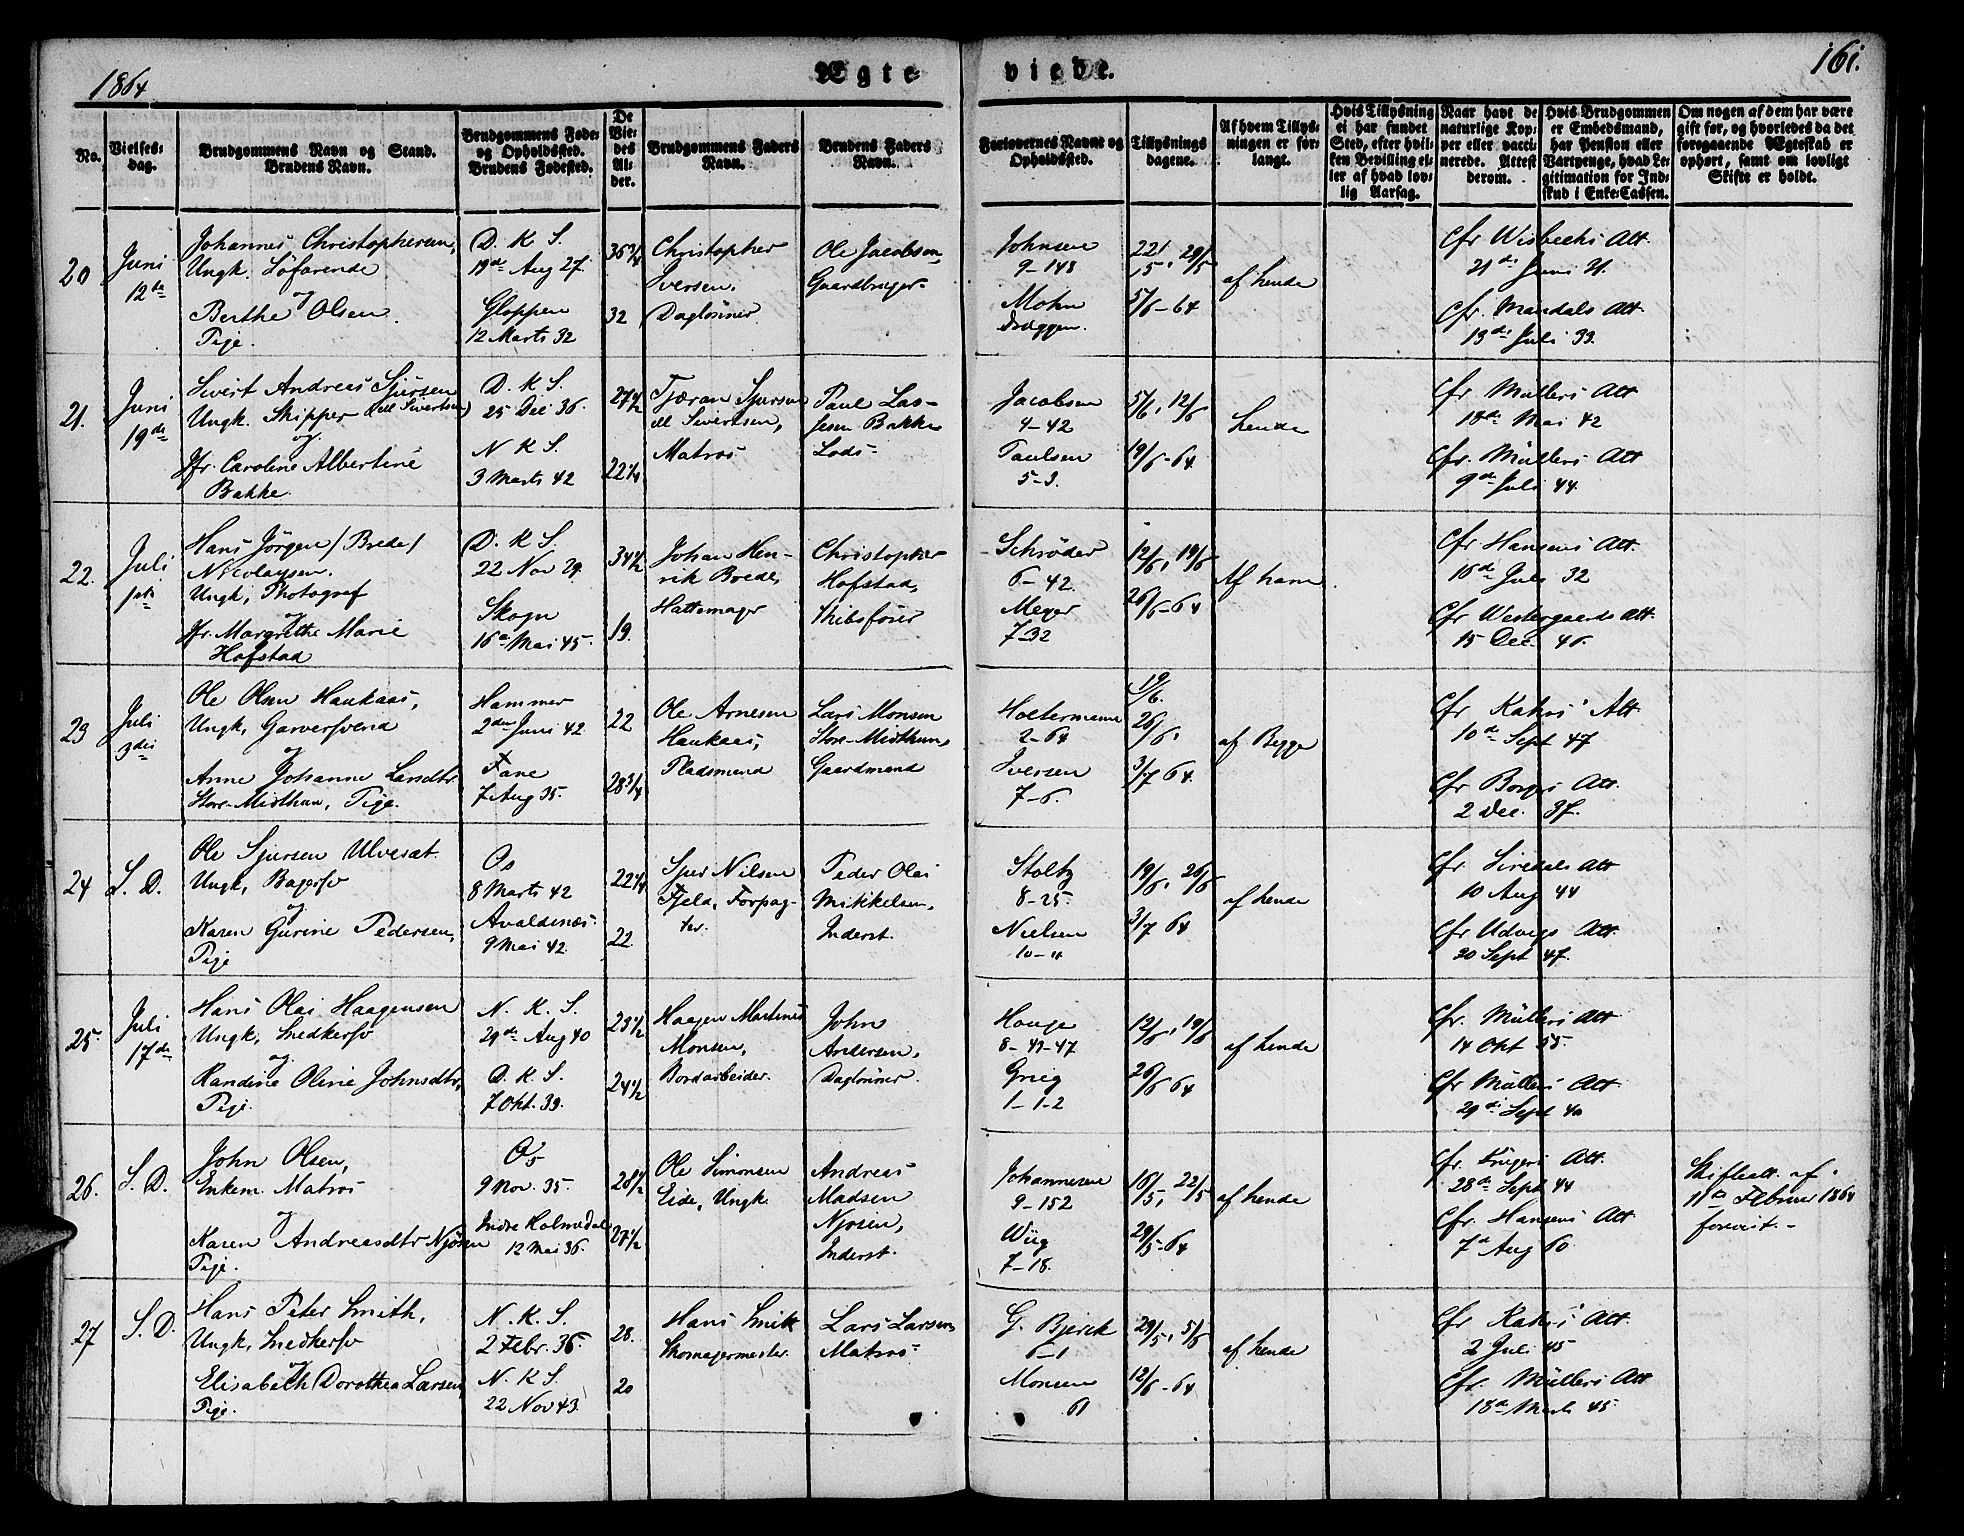 1864
Ægte-
viede.
161.
No.
Vielses-
dag.
Brudgommens Navn og Stand.
Brudens Navn.
Brudgommens Føde-
og Opholdssted.
Brudens Fødested.
De
Vie-
des
Al-
der.
Brudgommens Faders
Navn.
Brudens Faders
Navn.
Forlovernes Navne og
Opholdssted.
Tillysnings
dagene.
Af hvem Tillys-
ningen er for-
langt.
Hvis Tillysning
ei har fundet
Sted, efter hvil-
ken Bevilling el-
ler af hvad lov-
lig Aarsag.
Naar havt de
naturlige Kop-
per eller vacci-
nerede. Attest
derom.
Hvis Brudgommen
er Embedsmand,
har Pension eller
Vartpenge, hvad Le-
gitimation for Ind-
skud i Enke-Cassen.
Om nogen af dem har være
gift før, og hvorledes da det
foregaaende Ægteskab er
ophørt, samt om lovligt
Skifte er holdt.
20
Juni
12te
Johannes Christophersen,
Ungk. Søfarende
og
Berthe Olsen
Pige.
D. K. S.
19de Aug 27.
Gloppen
12 Marts 32
36 3/4
32
Christopher
Iversen,
Daglønner
Ole Jacobsen
Gaardbruger
Johnsen
9-148
Mohn
Dræggen.
22/5, 29/5
5/6-64
af hende
Cfr Wisbechs Att.
21de Juni 31.
Cfr. Mandals Att.
13de Juli 33.
21.
Juni
19de
Sivert Andreas Sjursen
Ungk. Skipper (ell Sivertsen)
og
Jfr. Caroline Albertine
Bakke.
D. K. S.
25 Dec 36.
N. K. S.
3 Marts 42
27 1/2
22 1/4
Tjæran Sjursen
ell Sivertsen,
Matros
Paul Las-
sesen Bakke
Lods
Jacobsen
4-42
Paulsen
5-3.
5/6, 12/6
19/6-64
hende
Cfr Müllers Att
18de Mai 42
Cfr. Müllers Att
9de Juli 44.
22.
Juli
1ste
Hans Jörgen /Brede/
Nicolaysen.
Ungk, Photograf
og
Jfr. Margrethe Marie
Hofstad
D. K. S.
22 Nov 29.
Skogn
16de Mai 45.
34 1/2
19.
Johan Hen-
rik Brede,
Hattemager
Christopher
Hofstad,
Skibsfører
Schrøder
6-42.
Meyer
7-32
12/6, 19/6
26/6-64
Af ham
Cfr Hansens Att.
16de Juli 32
Cfr Westergaards Att.
15 Dec. 46.
23
Juli
3die
Ole Olsen Haukaas,
Ungk, Garversvend
og
Anne Johanne Larsdtr
Store-Midthun, Pige.
Hammer
2den Juni 42.
Fane
7 Aug 35.
22
28 3/4
Ole Arnesen
Haukaas,
Pladsmand
Lars Monsen
Store-Midthun,
Gaardmand
Holtermann
2-64
Iversen
7-6.
19/6.
26/6,
3/7 64.
af Begge
Cfr Kahrs' Att
10de Sept 47
Cfr Borgs Att.
2 Dec. 37.
24
S. D.
Ole Sjursen Ulvesæt.
Ungk, Bagersv
og
Karen Gurine Pedersen,
Pige
Os
8 Marts 42
Avaldsnæs.
9 Mai 42.
22 1/4
22.
Sjur Nilsen
Fjeld, Forpag-
ter.
Peder Olai
Mikkelsen,
Inderst.
Stoltz
8-25.
Nielsen
10-11
19/6, 26/6
3/7 64
af hende
Cfr Siredals Att
10 Aug 44
Cfr Udvigs Att.
20 Sept 47.
25.
Juli
17de
Hans Olai Haagensen
Ungk, Snedkersv
og
Randine Oline Johnsdtr,
Pige.
N. K. S.
29de Aug 40
D. K. S.
7 Okt. 39.
23 1/2
24 1/2
Haagen Martinus
Monsen,
Bordarbeider.
John
Andersen,
Daglønner.
Hauge
8-49-47
Grieg
1-1-2
12/6, 19/6
26/6 64
af hende
Cfr. Müllers Att
14 Okt 55.
Cfr Müllers Att.
29de Sept 40
26.
S. D.
John Olsen,
Enkem. Matros
og
Karen Andreasdtr Njøsen
Pige.
Os
9 Nov. 35.
Indre Holmedal
12 Mai 36.
28 1/2
27 1/2
Ole Simonsen
Eide, Ungk
Andreas
Madsen
Njøsen,
Inderst.
Johannesen
9-152
Wiig
7-18.
16/5, 22/5
29/5-64
af hende
Cfr. Krügers Att.
28de Sept 44
Cfr. Hansens Att
7de Aug 60
Skifteatt. af
11te Februar 1864
forevist -
27
S. D.
Hans Peter Smith,
Ungk, Snedkersv
og
Elisabeth Dorothea Larsen
Pige.
N. K. S.
2 Febr. 36.
N. K. S.
22 Nov 43.
28.
20
Hans Smith
Skomagermester.
Lars Larsen
Matros
G. Bjerck
6-1
Monsen
61
29/5, 5/6
12/6-64
af hende
Cfr Kahrs' Att
2 Juli 45
Cfr. Müllers Att
18de Marts 45.